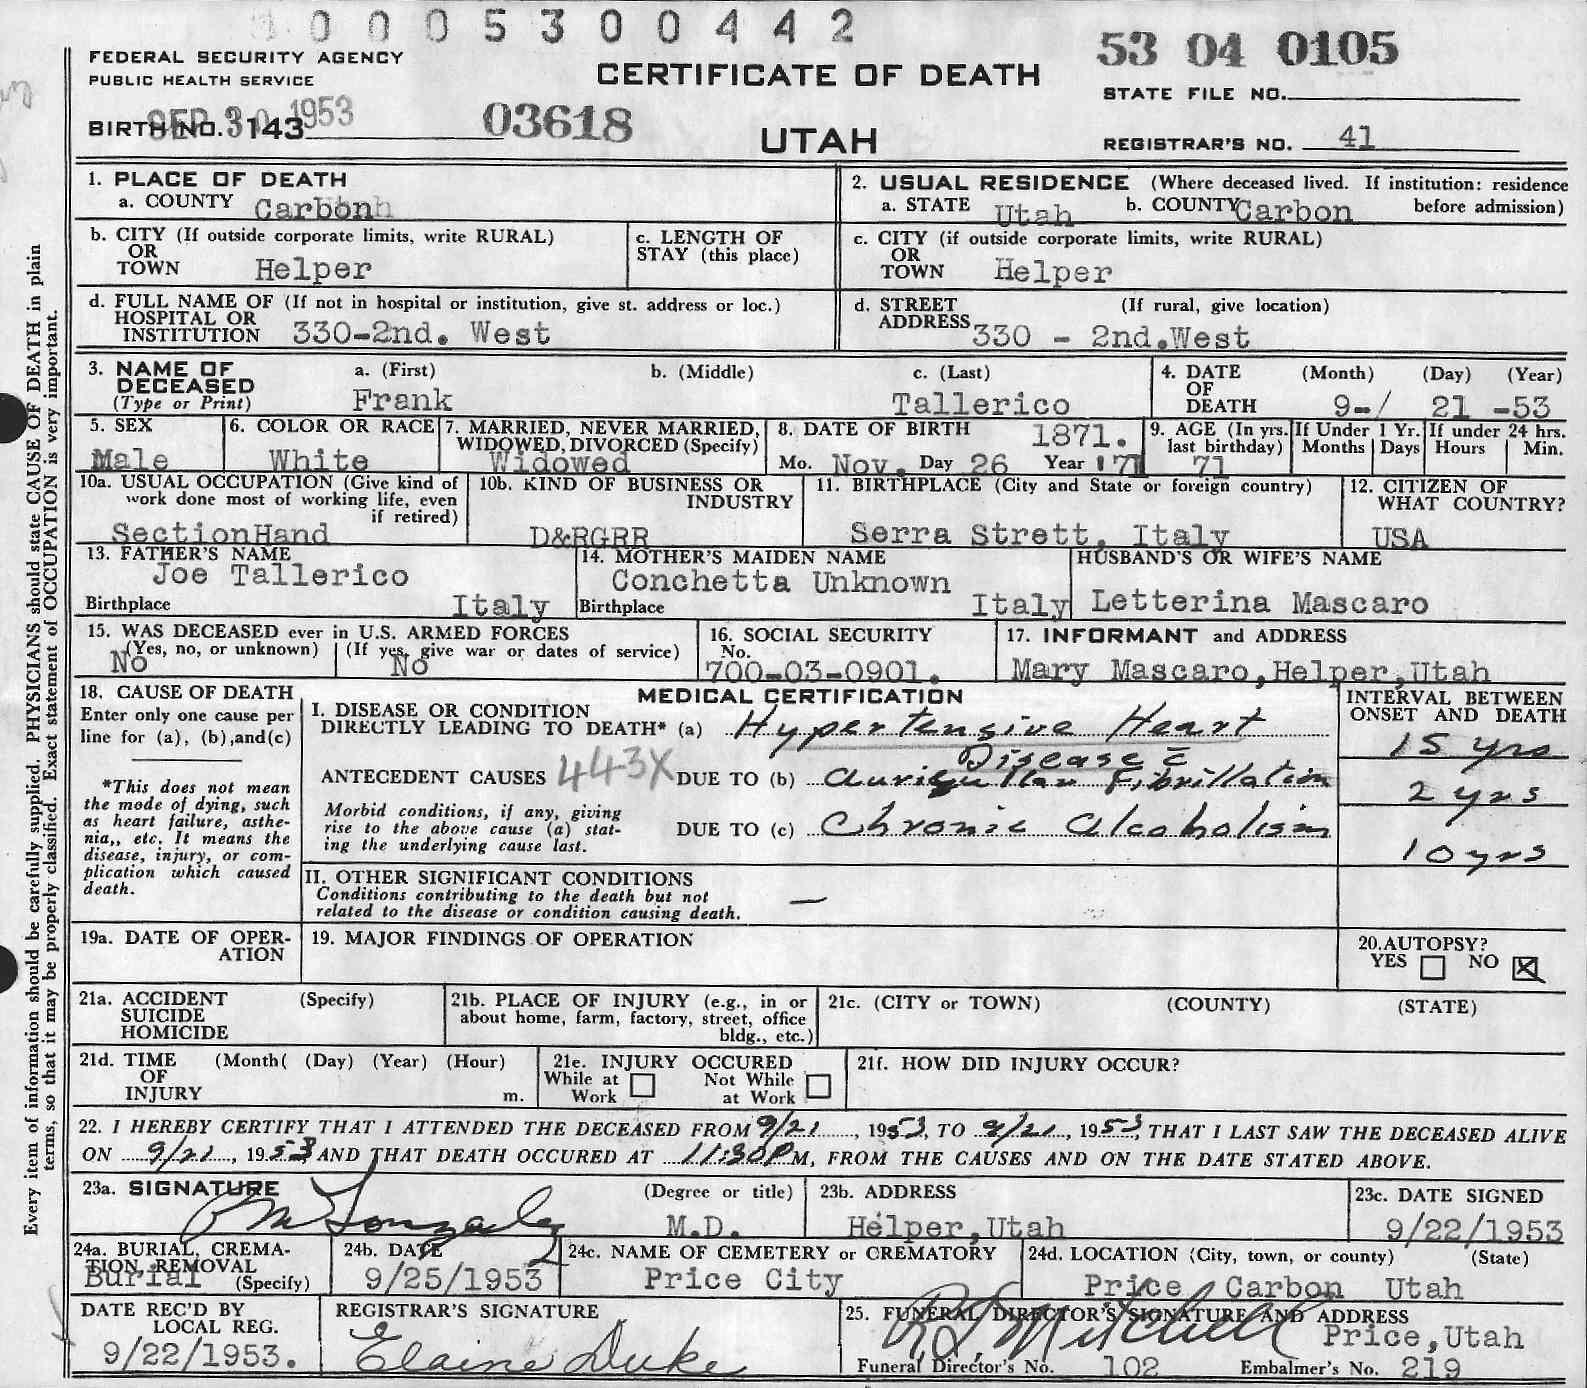 0005300442
FEDERAL SECURITY AGENCY
PUBLIC HEALTH SERVICE
CERTIFICATE OF DEATH
53 04 0105
STATE FILE NO.
SEP 30 1953
BIRTH NO. 143
03618
UTAH
REGISTRAR'S NO. 41
1. PLACE OF DEATH
a. COUNTY Carbon
2. USUAL RESIDENCE (Where deceased lived. If institution: residence before admission)
a. STATE Utah b. COUNTY Carbon
b. CITY (If outside corporate limits, write RURAL)
OR
TOWN Helper
c. LENGTH OF
STAY (this place)
c. CITY (if outside corporate limits, write RURAL)
OR
TOWN Helper
d. FULL NAME OF (If not in hospital or institution, give st. address or loc.)
HOSPITAL OR
INSTITUTION 330-2nd. West
d. STREET (If rural, give location)
ADDRESS 330 - 2nd.West
3. NAME OF
DECEASED
(Type or Print)
a. (First) b. (Middle) c. (Last)
Frank Tallerico
4. DATE (Month) (Day) (Year)
OF
DEATH 9-/ 21 -53
5. SEX
Male
6. COLOR OR RACE
White
7. MARRIED, NEVER MARRIED,
WIDOWED, DIVORCED (Specify)
Widowed
8. DATE OF BIRTH 1871.
Mo. Nov. Day 26 Year '71
9. AGE (In yrs.
last birthday)
71
If Under 1 Yr.
Months Days
If under 24 hrs.
Hours Min.
10a. USUAL OCCUPATION (Give kind of
work done most of working life, even
if retired)
SectionHand
10b. KIND OF BUSINESS OR
INDUSTRY
D&RGRR
11. BIRTHPLACE (City and State or foreign country)
Serra Strett, Italy
12. CITIZEN OF
WHAT COUNTRY?
USA
13. FATHER'S NAME
Joe Tallerico
Birthplace Italy
14. MOTHER'S MAIDEN NAME
Conchetta Unknown
Birthplace Italy
HUSBAND'S OR WIFE'S NAME
Letterina Mascaro
15. WAS DECEASED ever in U.S. ARMED FORCES
(Yes, no, or unknown) (If yes, give war or dates of service)
No No
16. SOCIAL SECURITY
No.
700-03-0901.
17. INFORMANT and ADDRESS
Mary Mascaro,Helper,Utah
18. CAUSE OF DEATH
Enter only one cause per
line for (a), (b),and(c)
*This does not mean
the mode of dying, such
as heart failure, asthe-
nia,, etc. It means the
disease, injury, or com-
plication which caused
death.
MEDICAL CERTIFICATION
I. DISEASE OR CONDITION
DIRECTLY LEADING TO DEATH* (a) Hypertensive Heart
Disease c̄
ANTECEDENT CAUSES 443X DUE TO (b) Auricular Fibrillation
Morbid conditions, if any, giving
rise to the above cause (a) stat-
ing the underlying cause last.
DUE TO (c) Chronic Alcoholism
INTERVAL BETWEEN
ONSET AND DEATH
15 yrs
2 yrs
10 yrs
II. OTHER SIGNIFICANT CONDITIONS
Conditions contributing to the death but not
related to the disease or condition causing death.
—
19a. DATE OF OPER-
ATION
19. MAJOR FINDINGS OF OPERATION
20. AUTOPSY?
YES NO
21a. ACCIDENT (Specify)
SUICIDE
HOMICIDE
21b. PLACE OF INJURY (e.g., in or
about home, farm, factory, street, office
bldg., etc.)
21c. (CITY or TOWN) (COUNTY) (STATE)
21d. TIME (Month( (Day) (Year) (Hour)
OF
INJURY m.
21e. INJURY OCCURED
While at Work Not While at Work
21f. HOW DID INJURY OCCUR?
22. I HEREBY CERTIFY THAT I ATTENDED THE DECEASED FROM 9/21, 1953, TO 9/21, 1953, THAT I LAST SAW THE DECEASED ALIVE
ON 9/21, 1953, AND THAT DEATH OCCURED AT 11:30P M, FROM THE CAUSES AND ON THE DATE STATED ABOVE.
23a. SIGNATURE (Degree or title)
M.D.
23b. ADDRESS
Helper,Utah
23c. DATE SIGNED
9/22/1953
24a. BURIAL, CREMA-
TION, REMOVAL
(Specify)
Burial
24b. DATE
9/25/1953
24c. NAME OF CEMETERY or CREMATORY
Price City
24d. LOCATION (City, town, or county) (State)
Price Carbon Utah
DATE REC'D BY
LOCAL REG.
9/22/1953.
REGISTRAR'S SIGNATURE
Elaine Duke
25. FUNERAL DIRECTOR'S SIGNATURE AND ADDRESS
Mitchell Price,Utah
Funeral Director's No. 102 Embalmer's No. 219
Every item of information should be carefully supplied. PHYSICIANS should state CAUSE OF DEATH in plain
terms, so that it may be properly classified. Exact statement of OCCUPATION is very important.